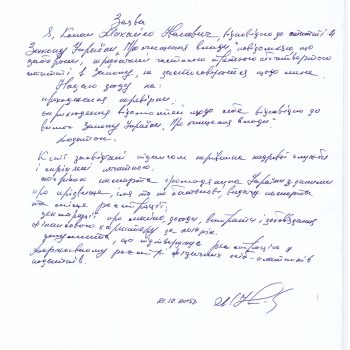 Заява
Я, Коман Михайло Іванович, відповідно до статті 4
Закону України „Про очищення влади" повідомляю, що
заборони, визначені частиною третьою або четвертою
статті 1 Закону, не застосовуються щодо мене.
Надаю згоду на:
проходження перевірки;
оприлюднення відомостей щодо себе відповідно до
вимог Закону України „Про очищення влади"
Додатки:
Копії засвідчені підписом керівника кадрової служби
і скріплені печаткою:
сторінок паспорта громадянина України з даними
про прізвище, ім'я та по батькові, видачу паспорта
та місце реєстрації;
декларації про майно, доходи, витрати і зобов'язання
фінансового характеру за рік;
документа, що підтверджує реєстрацію у
Державному реєстрі фізичних осіб-платників
податків.
.12.2015р.